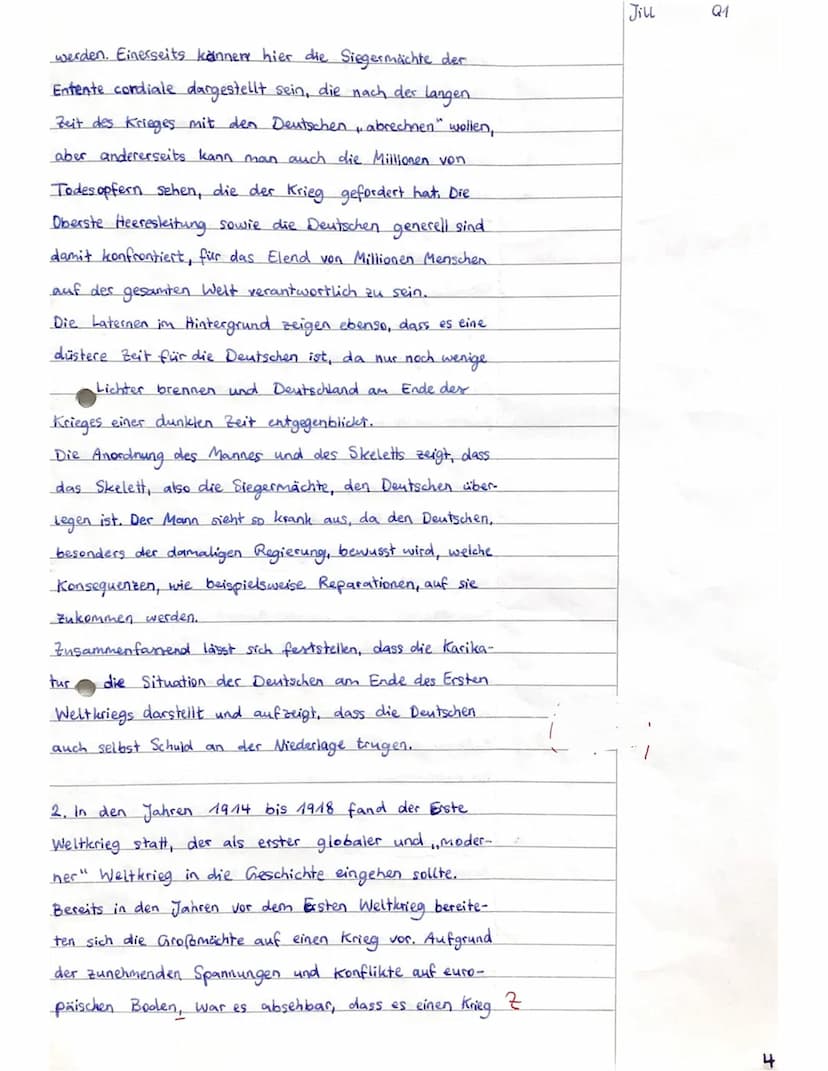 Jill Q1
werden. Einerseits können hier die Siegermächte der
Entente cordiale dargestellt sein, die nach der langen
Zeit des Krieges mit den Deutschen „abrechnen" wollen,
aber andererseits kann man auch die Millionen von
Todesopfern sehen, die der Krieg gefordert hat. Die
Oberste Heeresleitung sowie die Deutschen generell sind
damit konfrontiert, für das Elend von Millionen Menschen
auf der gesamten Welt verantwortlich zu sein.
Die Laternen im Hintergrund zeigen ebenso, dass es eine
düstere Zeit für die Deutschen ist, da nur noch wenige
Lichter brennen und Deutschland am Ende des
Krieges einer dunklen Zeit entgegenblickt.
Die Anordnung des Mannes und des Skeletts zeigt, dass
das Skelett, also die Siegermächte, den Deutschen über-
legen ist. Der Mann sieht so krank aus, da den Deutschen,
besonders der damaligen Regierung, bewusst wird, welche
Konsequenzen, wie beispielsweise Reparationen, auf sie
zukommen werden.
Zusammenfassend lässt sich feststellen, dass die Karika-
tur die Situation der Deutschen am Ende des Ersten
Weltkriegs darstellt und aufzeigt, dass die Deutschen
auch selbst Schuld an der Niederlage trugen.
2. In den Jahren 1914 bis 1918 fand der Erste
Weltkrieg statt, der als erster globaler und „moder-
ner" Weltkrieg in die Geschichte eingehen sollte.
Bereits in den Jahren vor dem Ersten Weltkrieg bereite-
ten sich die Großmächte auf einen Krieg vor. Aufgrund
der zunehmenden Spannungen und Konflikte auf euro-
päischen Boden, war es absehbar, dass es einen Krieg Z
4